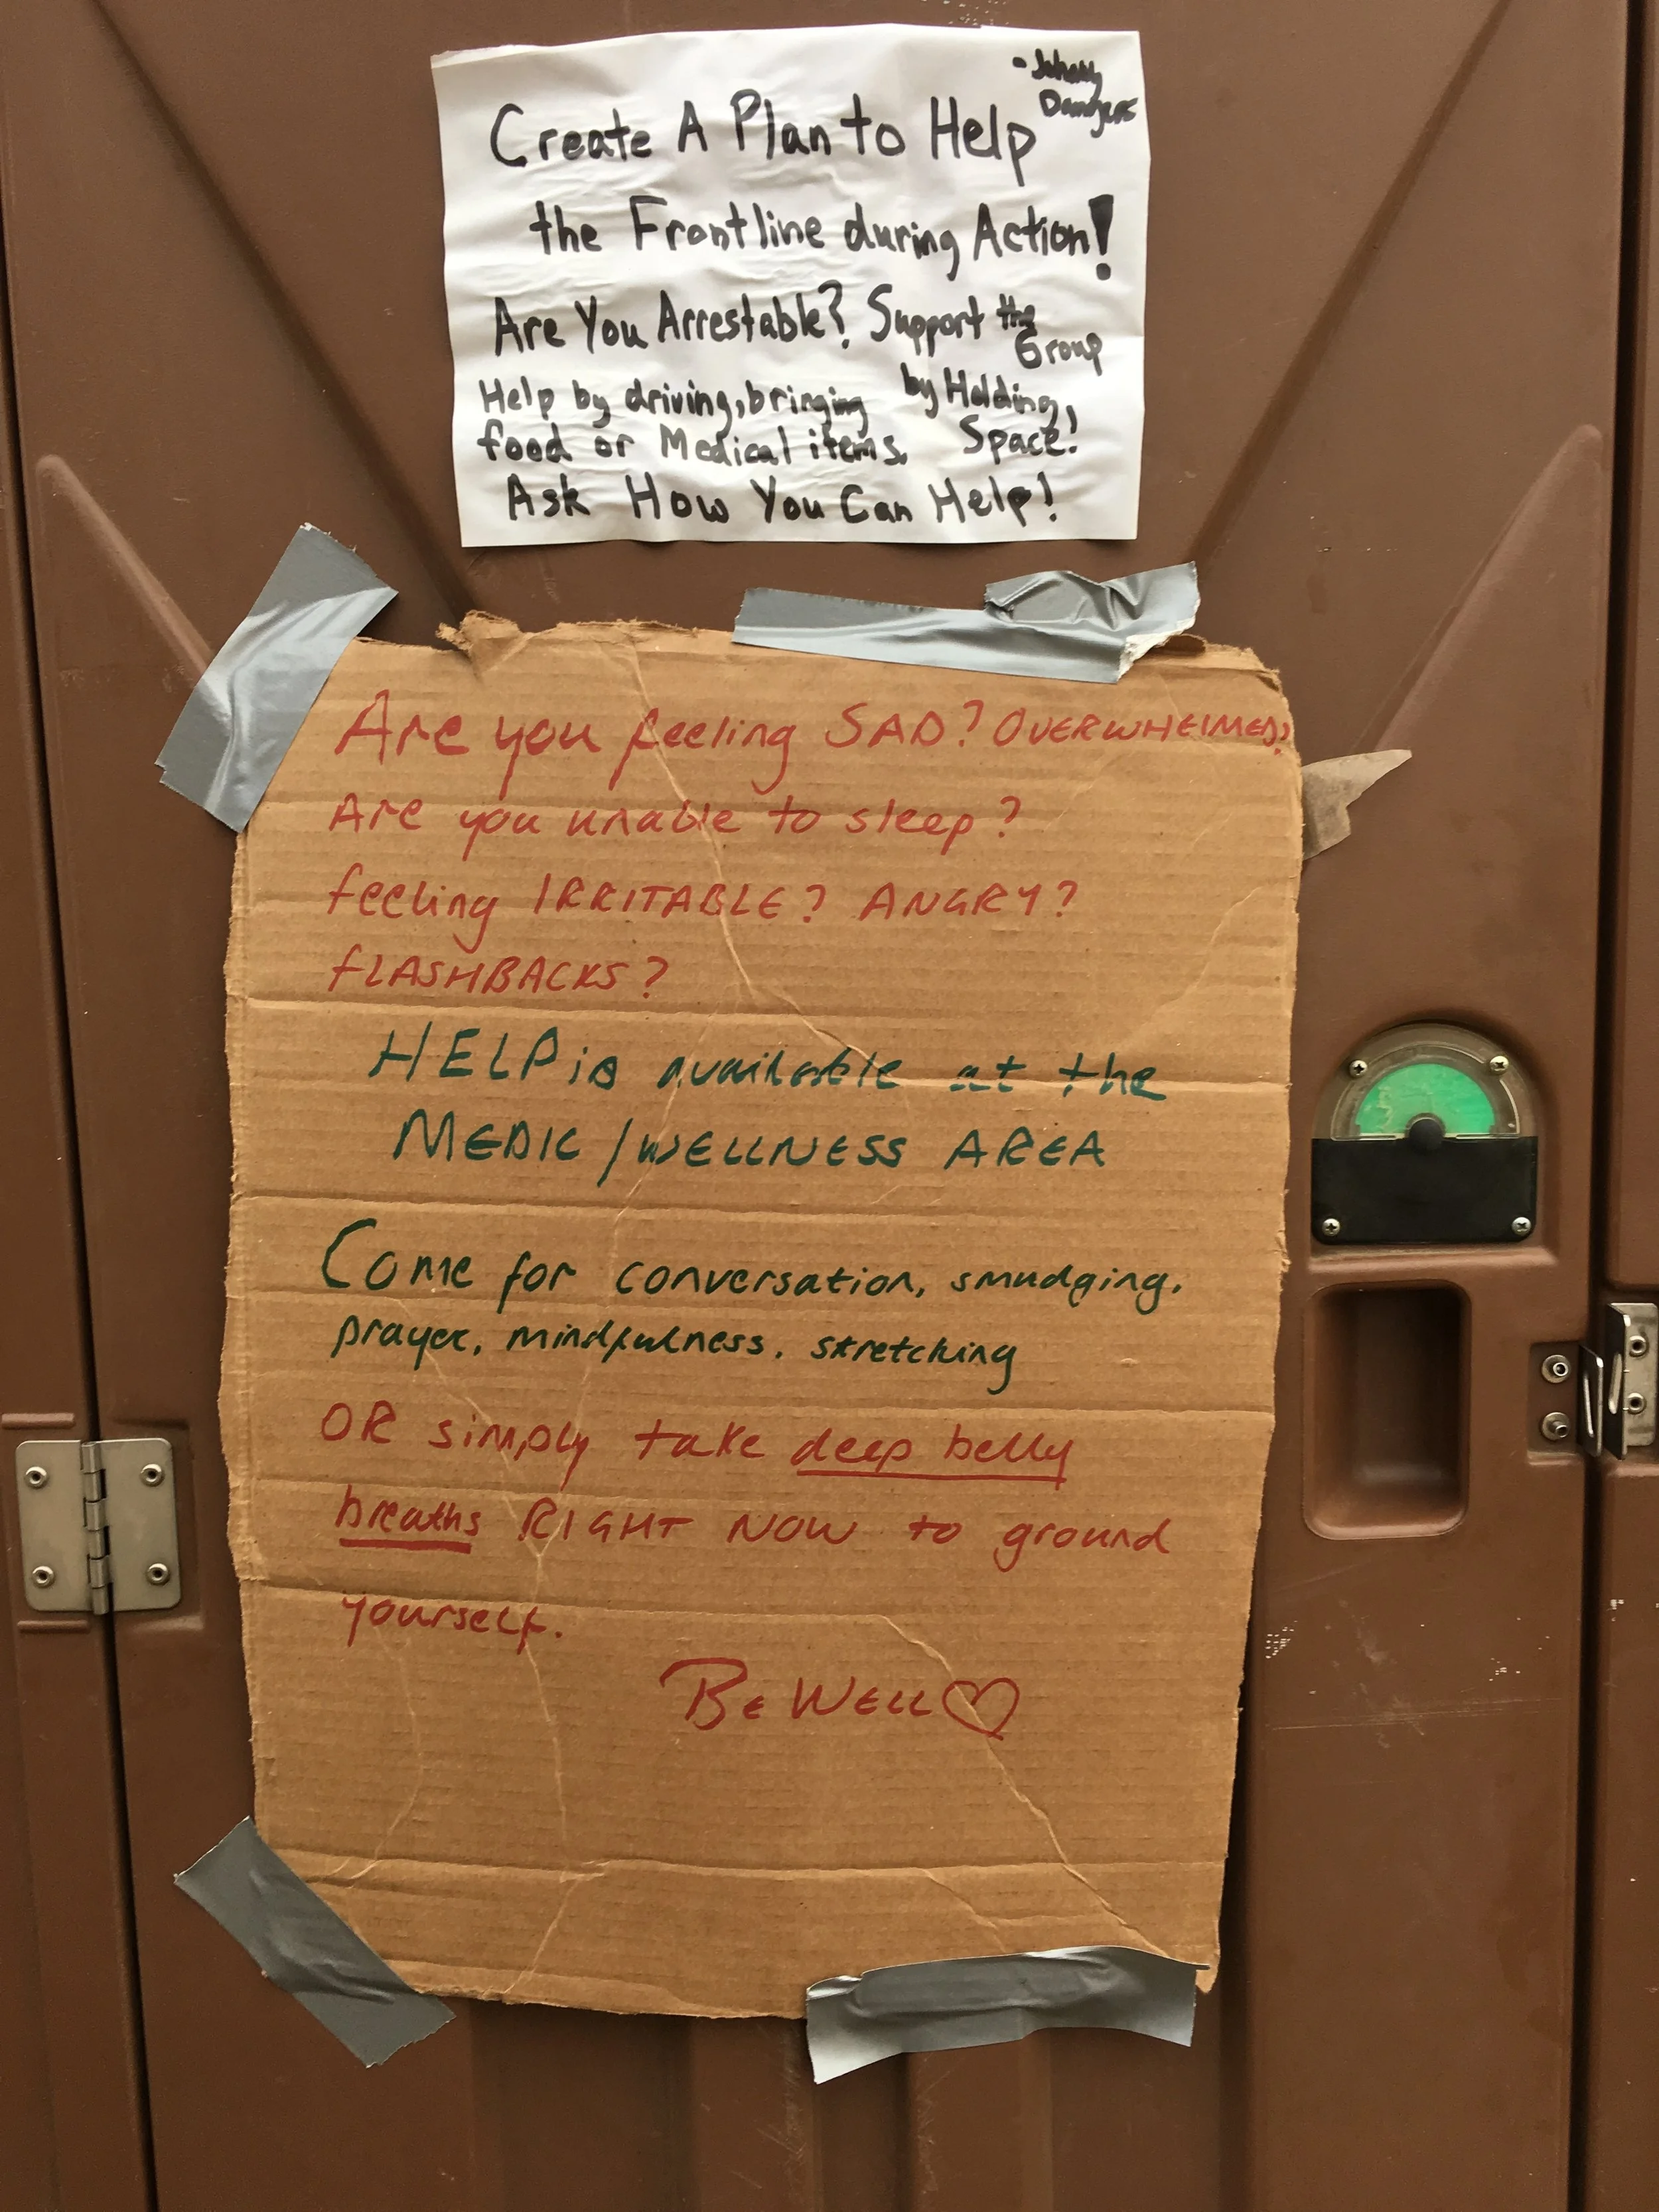 - Johnny
Dangers
Create A Plan to Help
the Frontline during Action!
Are You Arrestable? Support the
Group
by Holding,
Space!
Help by driving, bringing
food or Medical items.
Ask How You Can Help!
Are you feeling SAD? OVERWHELMED?
Are you unable to sleep?
feeling IRRITABLE? ANGRY?
fLASHBACKS?
HELP is available at the
MEDIC / WELLNESS AREA
Come for conversation, smudging,
prayer, mindfulness, stretching
OR simply take deep belly
breaths RIGHT NOW to ground
yourself.
BE WELL♡